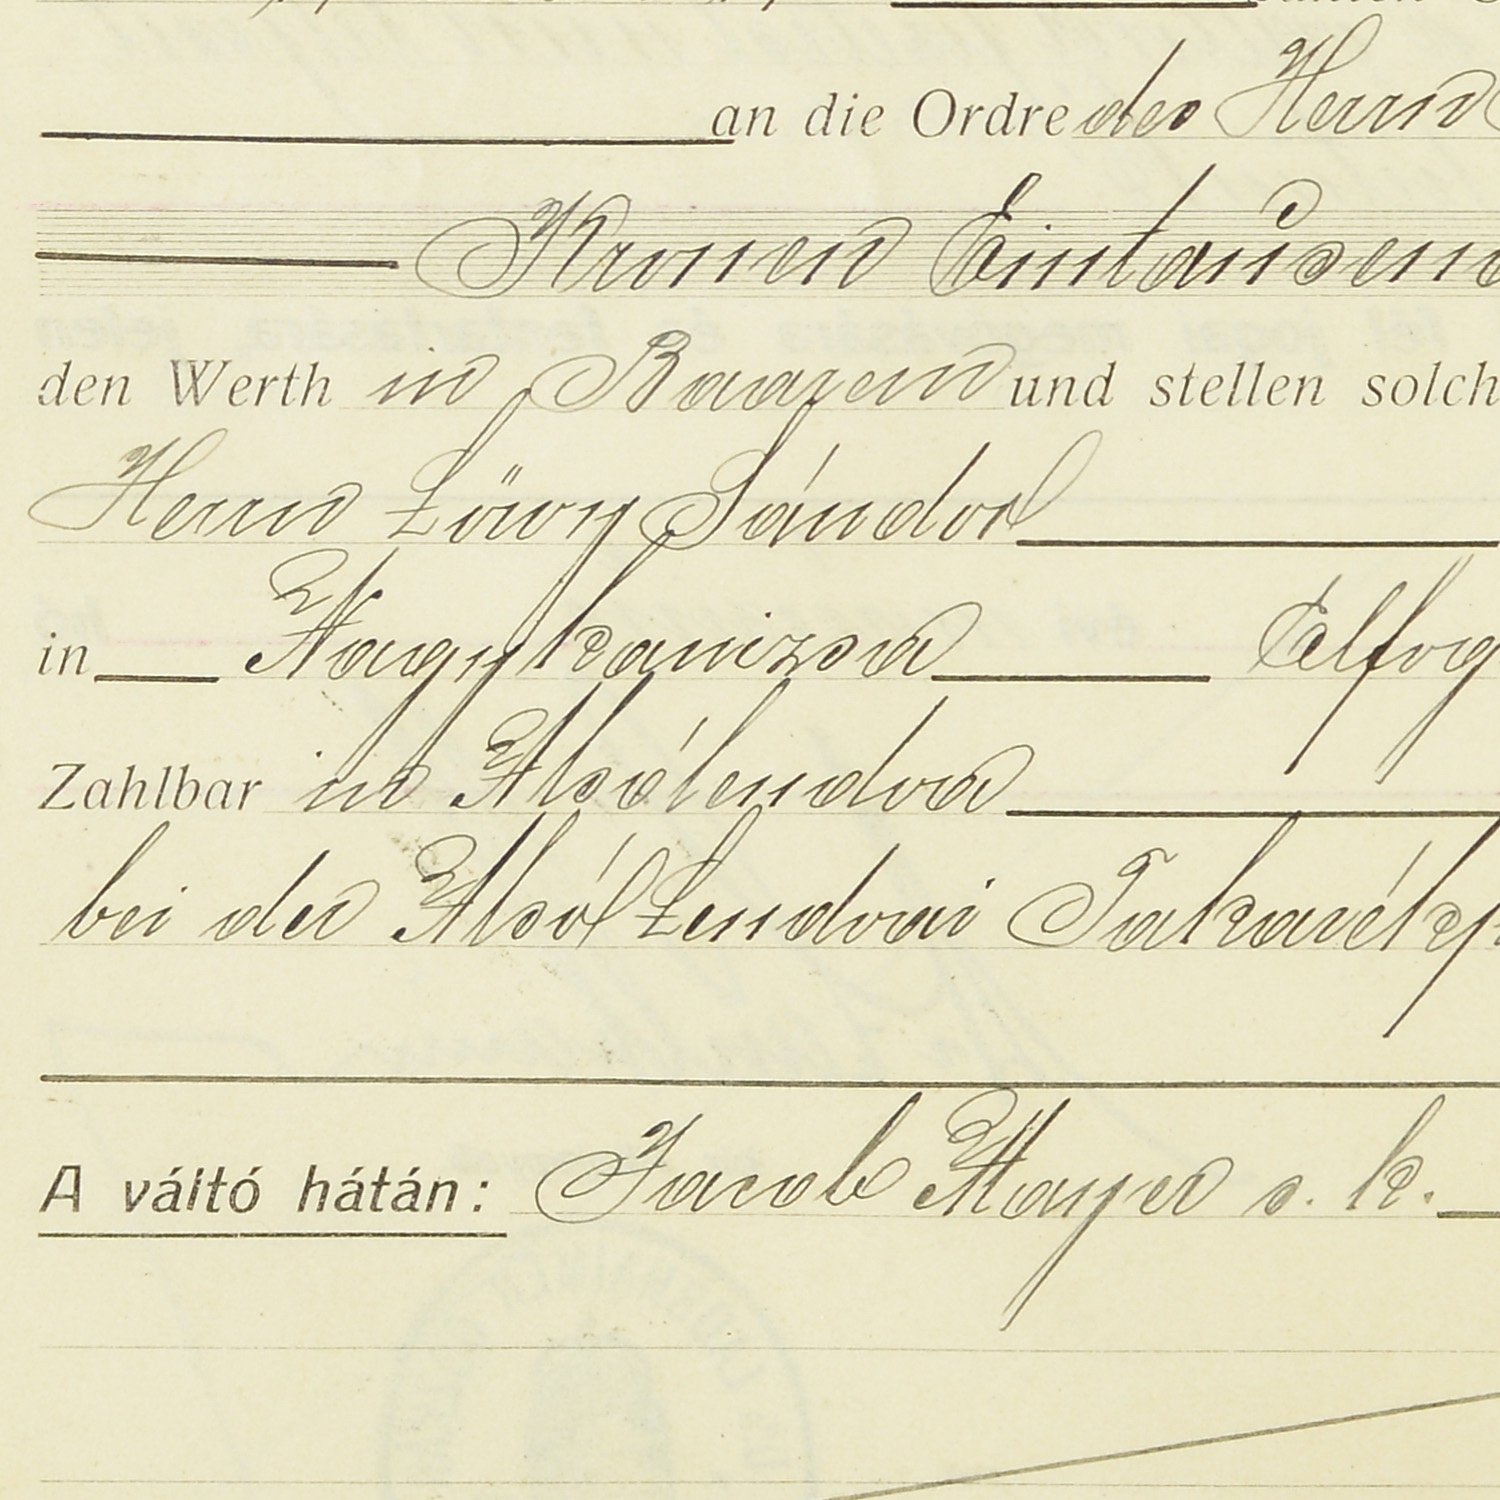 an die Ordre des Herrn
Kronen Eintausend
den Werth in Baarem und stellen solch
Herrn Löwy Sándor
in Nagykanizsa Elfog
Zahlbar in Alsólendva
bei der Alsó Lendvai Takarékp
A váltó hátán: Jacob Mayer s. k.